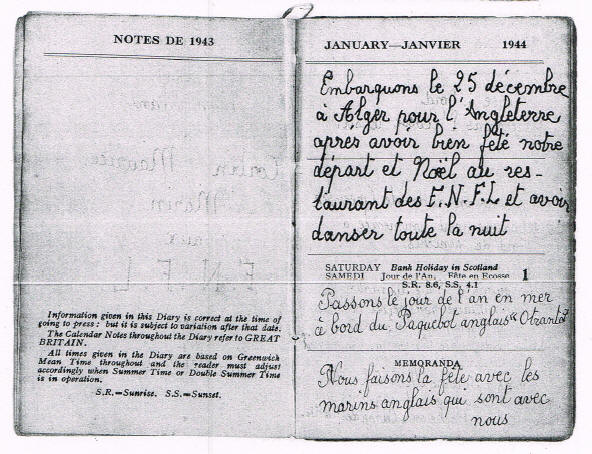 NOTES DE 1943
Information given in this Diary is correct at the time of
going to press: but it is subject to variation after that date.
The Calendar Notes throughout the Diary refer to GREAT
BRITAIN.
All times given in the Diary are based on Greenwich
Mean Time throughout and the reader must adjust
accordingly when Summer Time or Double Summer Time
is in operation.
S.R.=Sunrise. S.S.=Sunset.
JANUARY—JANVIER 1944
Embarquons le 25 décembre
à Alger pour l'Angleterre
apres avoir bien fêté notre
départ et Noël au res-
taurant des F.N.F.L et avoir
danser toute la nuit
SATURDAY Bank Holiday in Scotland
SAMEDI Jour de l'An, Fête en Ecosse 1
S.R. 8.6, S.S. 4.1
Passons le jour de l'an en mer
à bord du Paquebot anglais "Otranto"
MEMORANDA
Nous faisons la fête avec les
marins anglais qui sont avec
nous